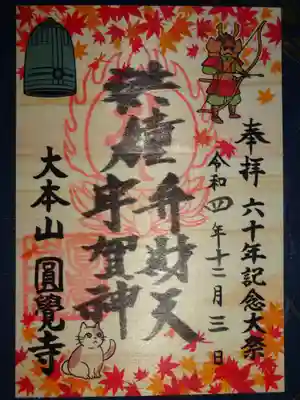 奉拝 六十年記念大祭
令和四年十二月三日
洪鐘弁財天
宇賀神
大本山 圓覺寺